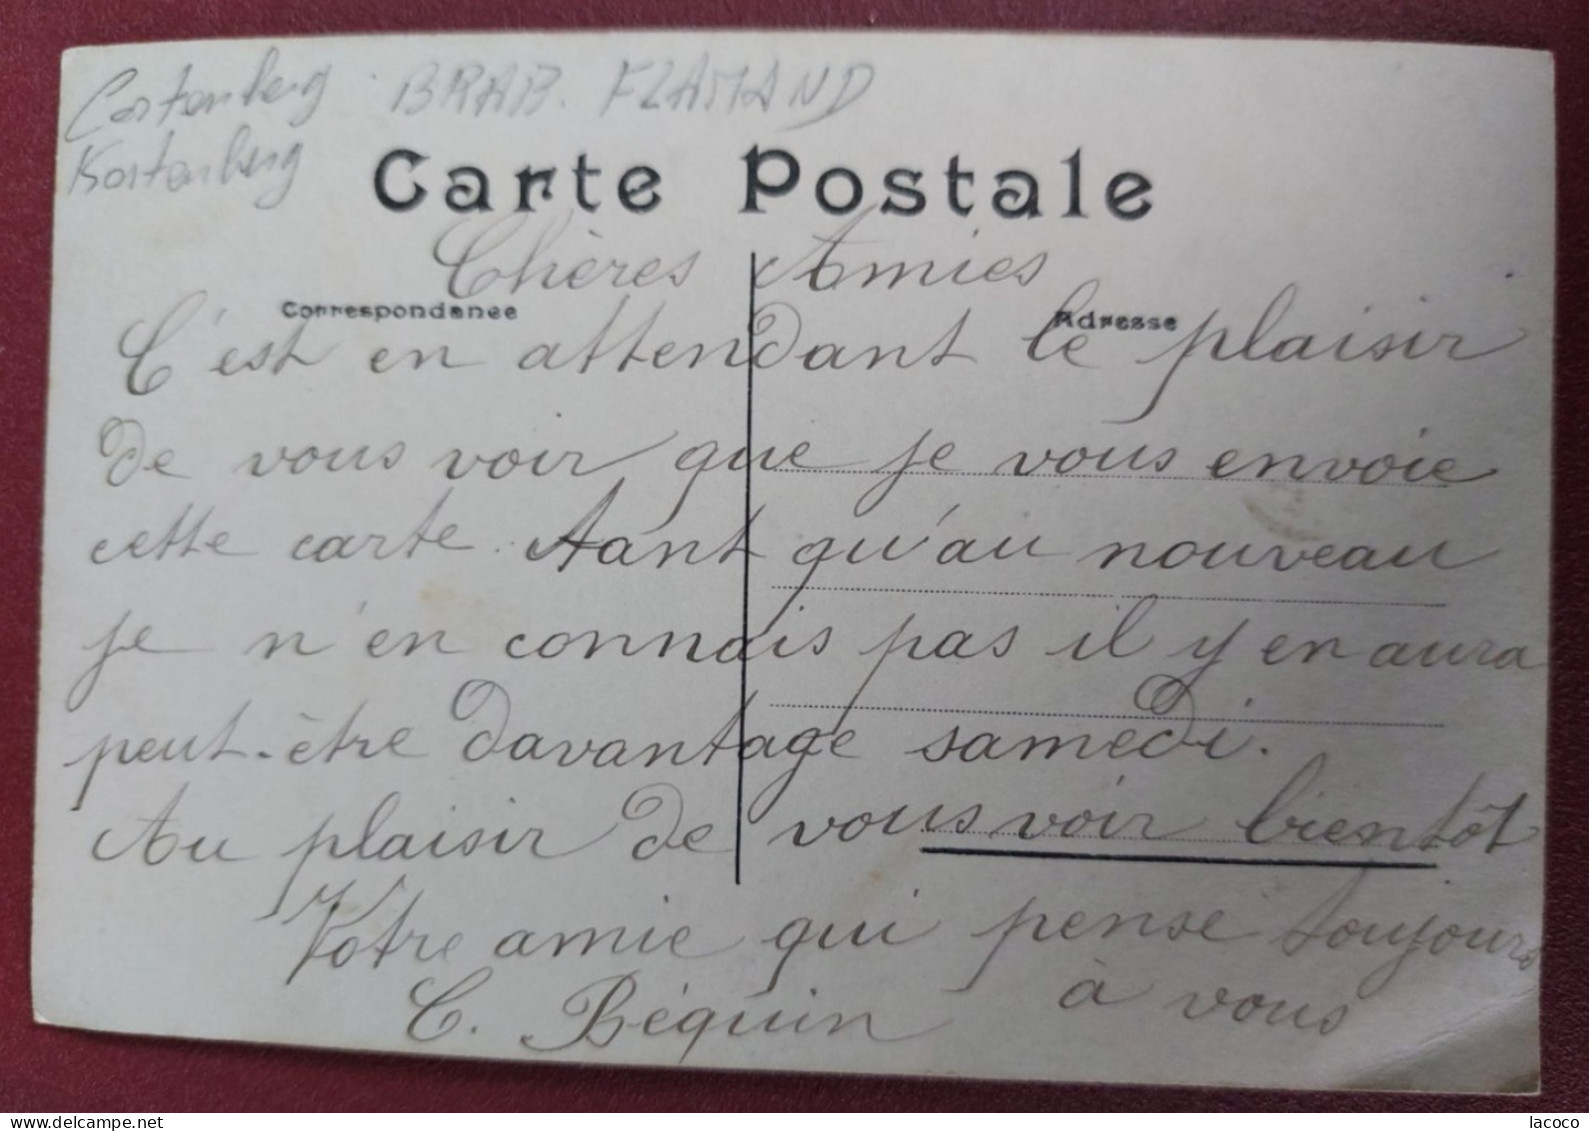 Cortenberg BRAB. FLAMAND
Kortenberg
Carte Postale
Chères Amies
Correspondance
Adresse
C'est en attendant le plaisir
de vous voir que je vous envoie
cette carte. Tant qu'au nouveau
je n'en connais pas il y en aura
peut-être davantage samedi.
Au plaisir de vous voir bientôt
Votre amie qui pense toujours
à vous
C. Béquin
www.delcampe.net
lacoco